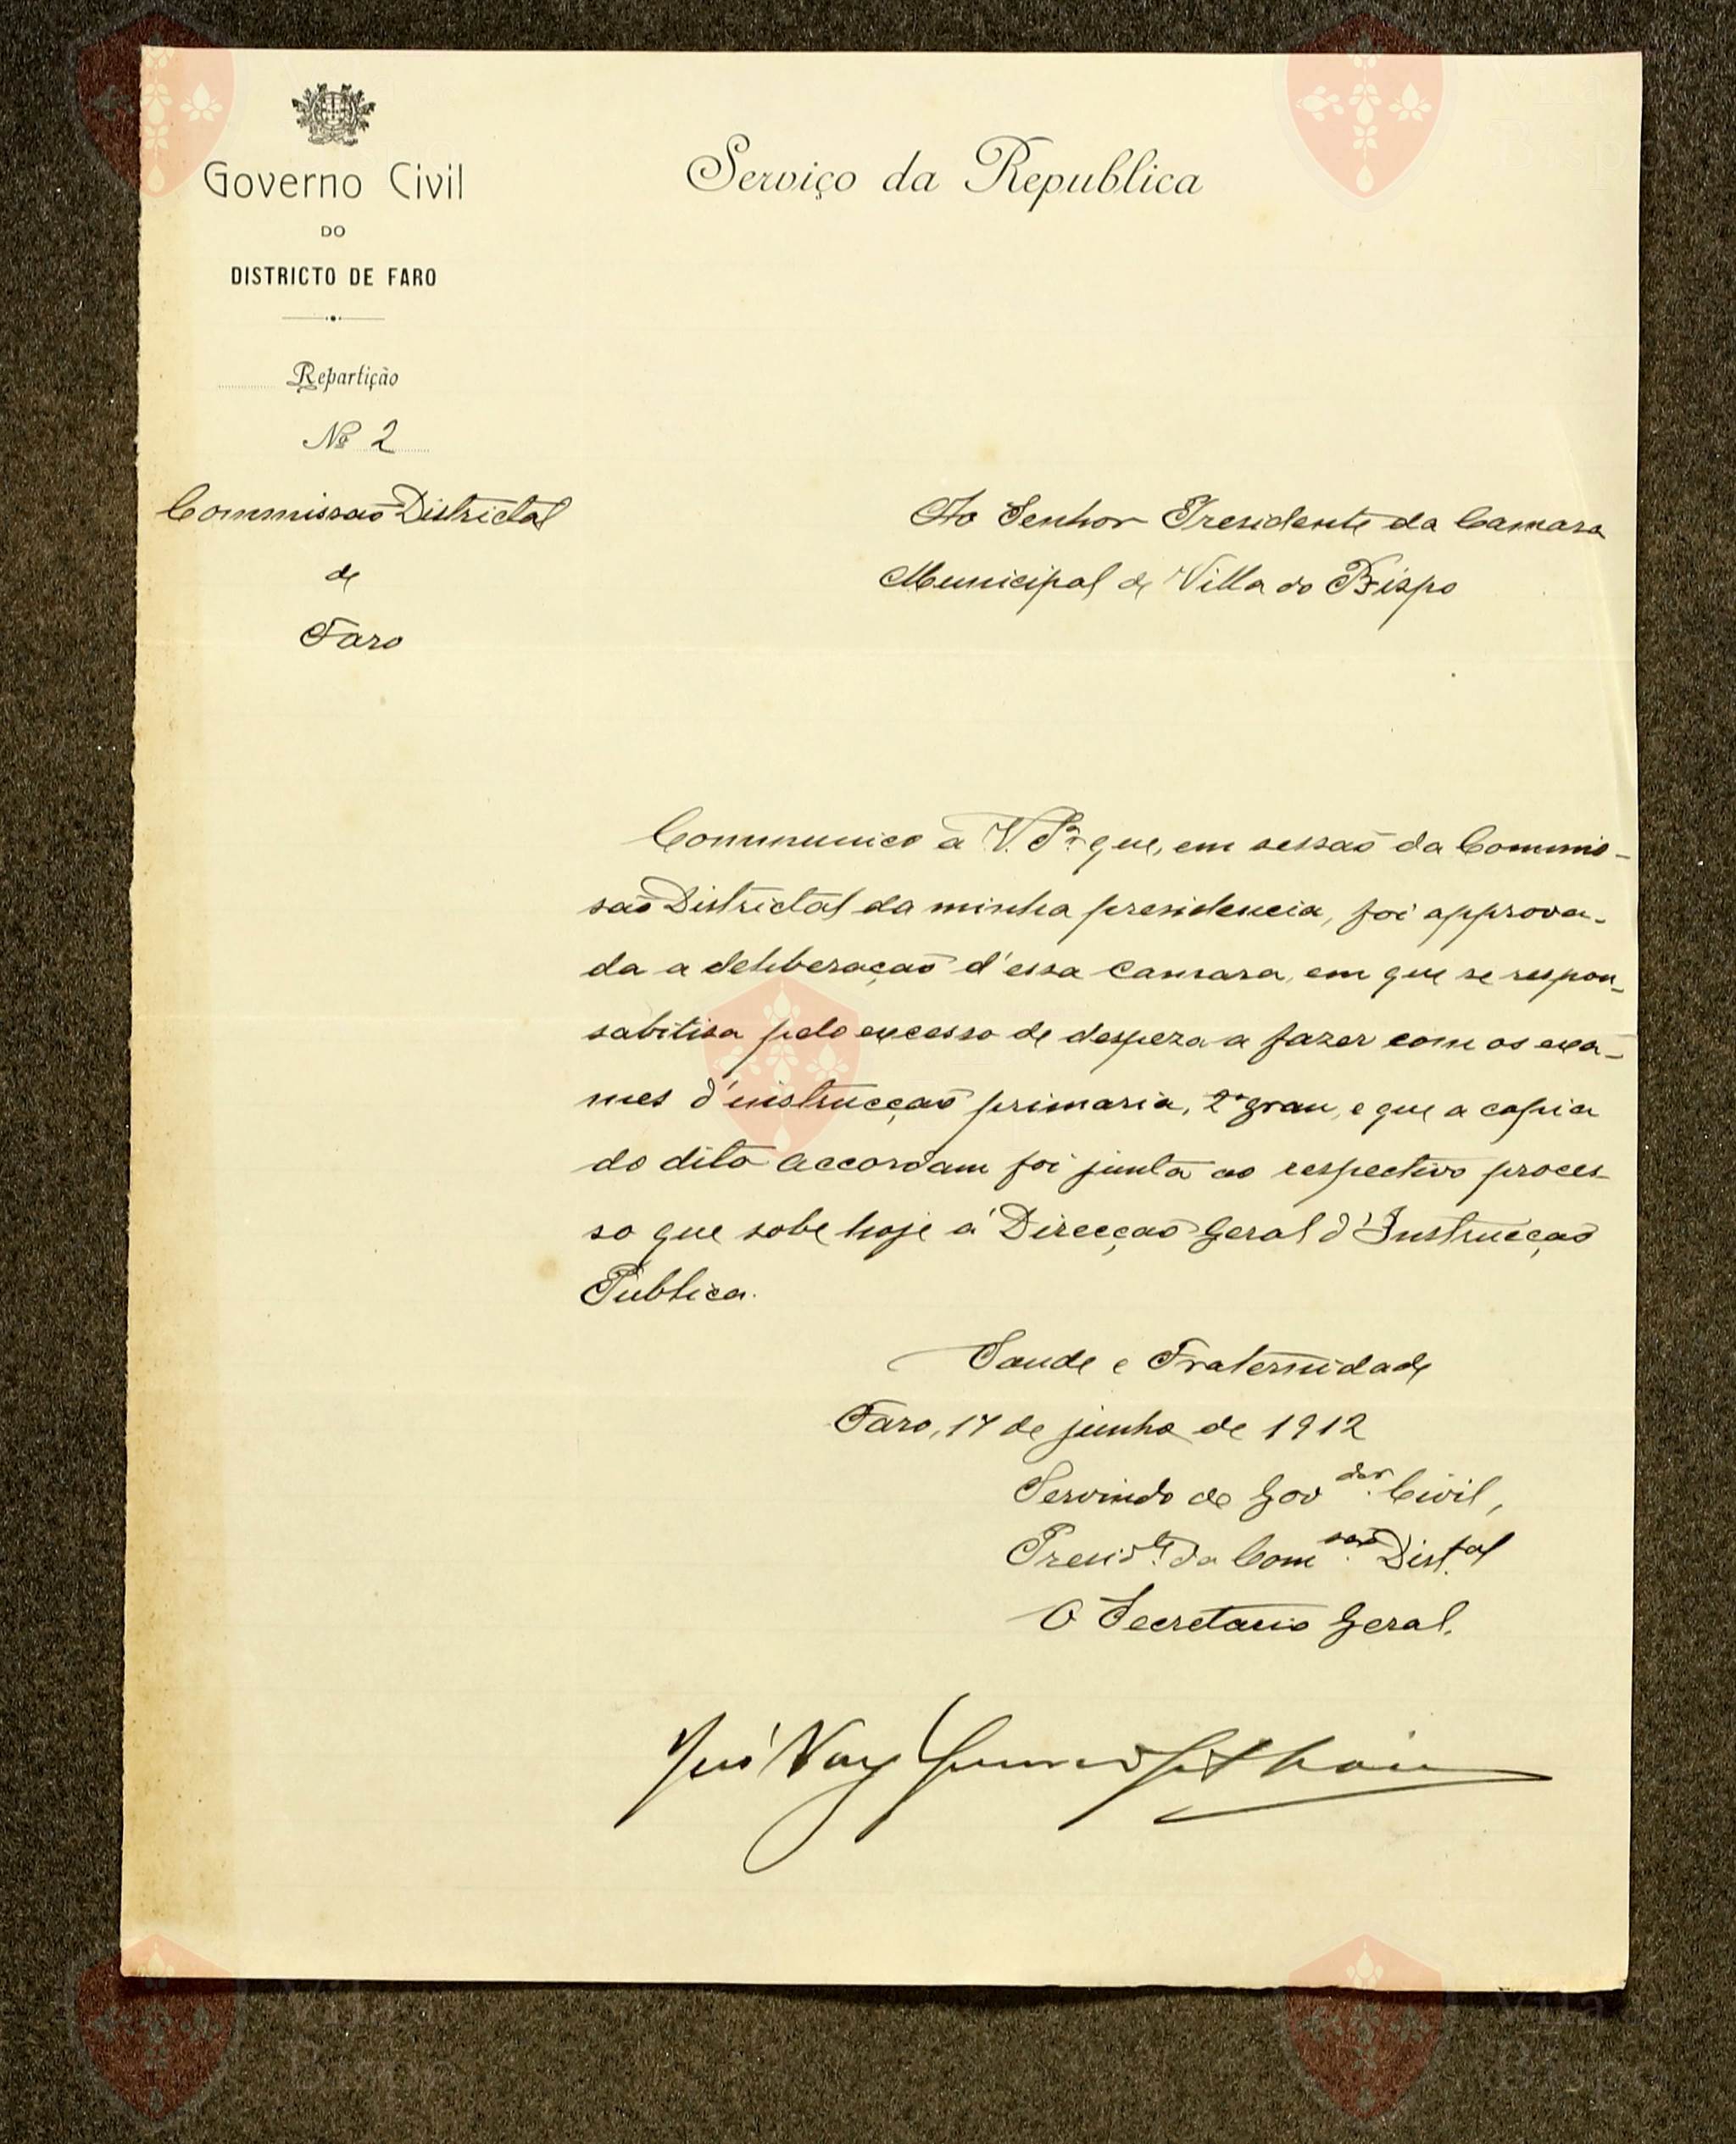 Governo Civil
DO
DISTRICTO DE FARO
Repartição
Nº 2
Commissão Districtal
de
Faro
Serviço da Republica
Ao Senhor Presidente da Camara
Municipal de Villa do Bispo
Communico a V. que, em sessão da Commis-
são Districtal da minha presidencia, foi approva-
da a deliberação d'essa Camara, em que se respon-
sabilisa pelo excesso de despeza a fazer com os exa-
mes d'instrucção primaria, 2º grau, e que a copia
do dito accordam foi junta ao respectivo proces-
so que sobe hoje á Direcção Geral d'Instrucção
Publica.
Saude e Fraternidade
Faro, 17 de junho de 1912
Servindo de Gov.dor Civil,
Presid.te da Com.são Dist.al
O Secretario Geral,
José Vaz
Vila do
Bispo
Vila do
Bispo